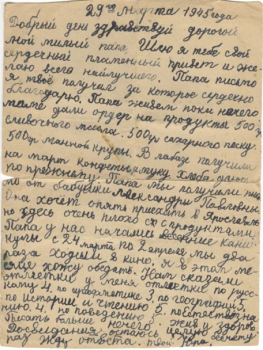 29го марта 1945 года
Добрый день здравствуй дорогой
мой милый папа Шлю я тебе свой
сердечный пламенный привет и же-
лаю всего наилучшего. Папа письмо
я твоё получил за которое сердечно
благодарю. Папа живем пока ничего
маме дали ордер на продукты 500 гр
сливочного масла. 500гр сахарного песку.
500гр манной крупы. В лавазе получили
на март конфеты муку. Хлеба
по прежнему. Папа мы получили
от бабушки Александры Павловны
Она хочет опять приехать в Ярославль
но здесь очень плохо с продуктами.
Папа у нас начались весенние кани-
кулы с 24 марта по 2 апреля мы два
раза ходили в кино,
обедать. Нам сказали
отметки у меня отметки по рус-
кому 4. по арифметике 3. по географии 3.
по истории и чтению 5. по естествозна-
нию 4. по поведению 5.
писать больше нечего. жив и здоров.
Досвидания остаюсь целую
раз жду ответа.